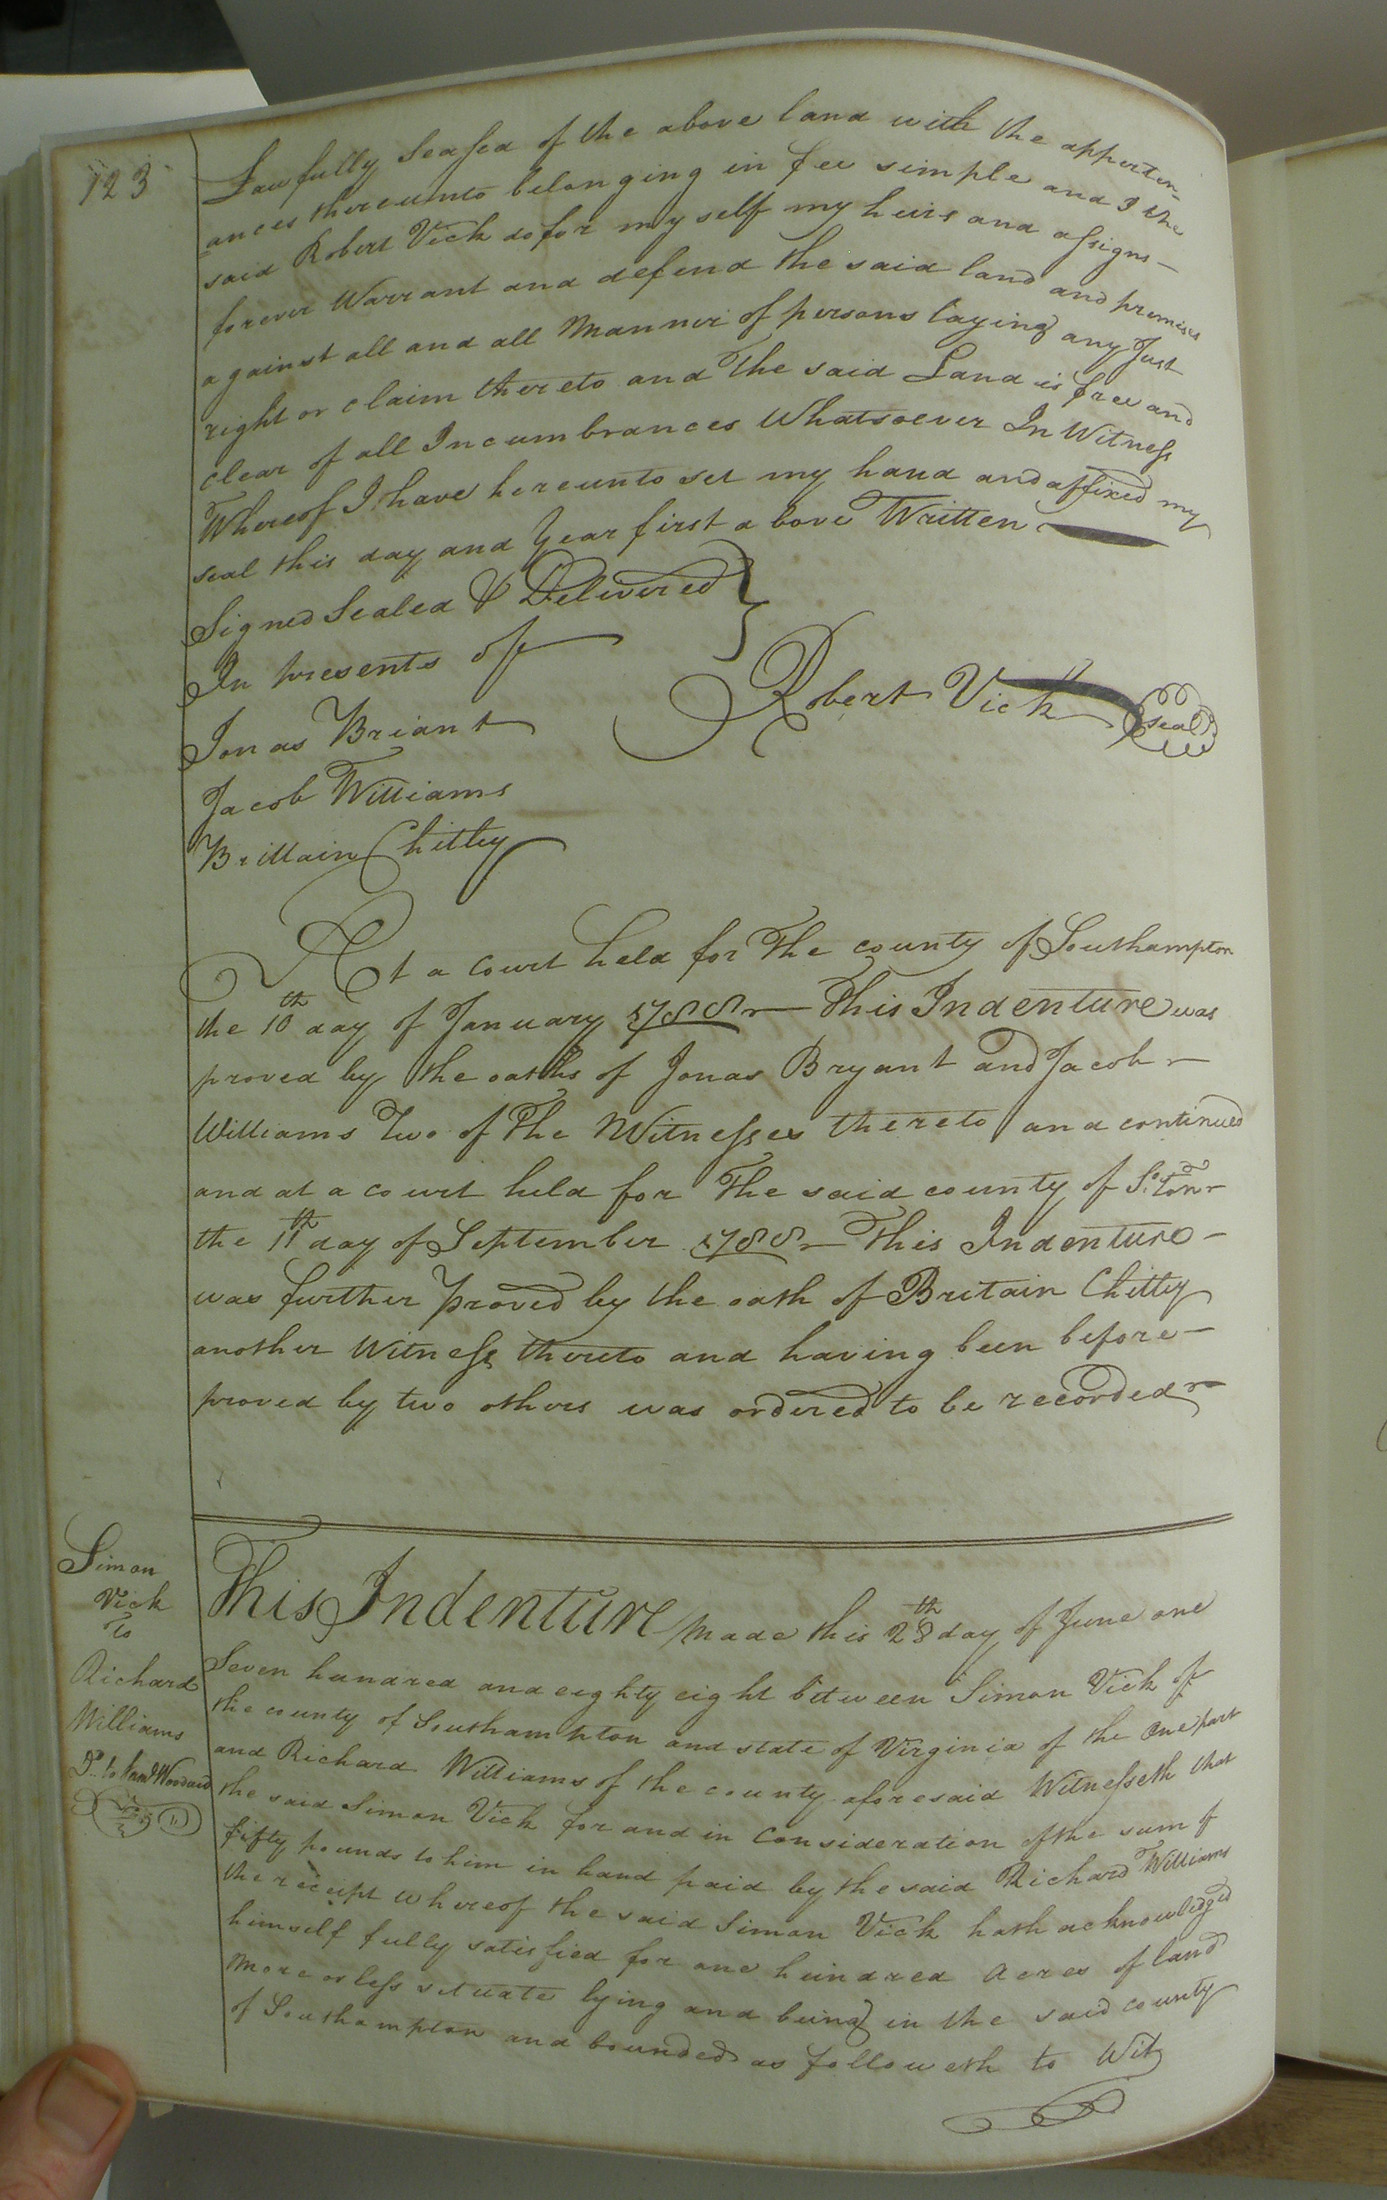 123
Lawfully Seased of the above land with the apperten-
ances thereunto belonging in fee simple and I the
said Robert Vick do for my self my heirs and assigns—
forever Warrant and defend the said land and premises
against all and all Manner of persons laying any Just
right or claim thereto and The said Land is free and
clear of all Incumbrances Whatsoever In Witness
Whereof I have hereunto set my hand and affixed my
seal this day and Year first above Written
Signed Sealed & Delivered }
In presents off
Robert Vick (seal)
Jonas Briant
Jacob Williams
Brittain Chitty
At a court held for The county of Southampton
the 10th day of January 1788— This Indenture was
proved by the oaths of Jonas Bryant and Jacob
Williams Two of The Witnesses thereto and continued
and at a court held for The said county of So.ton
the 11th day of September 1788— This Indenture—
was further proved by the oath of Britain Chitty
another Witness thereto and having been before—
proved by two others was ordered to be recorded
Simon
Vick
To
Richard
Williams
Do. to Woodard
This Indenture made this 28th day of June one
Seven hundred and eighty eight between Simon Vick of
the county of Southampton and state of Virginia of the one part
and Richard Williams of the county aforesaid Witnesseth that
the said Simon Vick for and in Consideration of the sum of
fifty pounds to him in hand paid by the said Richard Williams
the receipt whereof the said Simon Vick hath acknowledged
himself fully satisfied for one hundred Acres of land
more or less situate lying and being in the said county
of Southampton and bounded as followeth to Wit